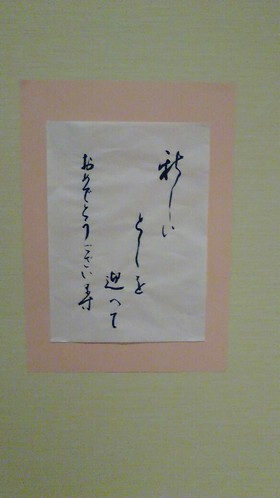 新しい
としを
迎へて
おめでとうございます